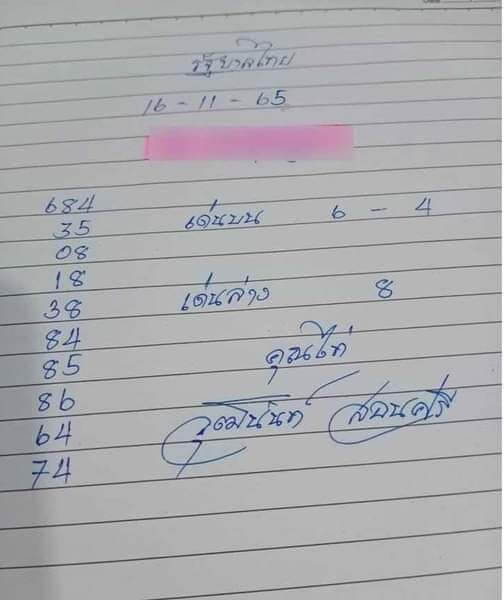 รัฐบาลไทย
16 - 11 - 65
684
35 เด่นบน 6 - 4
08
18
38 เด่นล่าง 8
84
85 คุณไก่
86
64 วุฒินันท์ สอนศรี
74